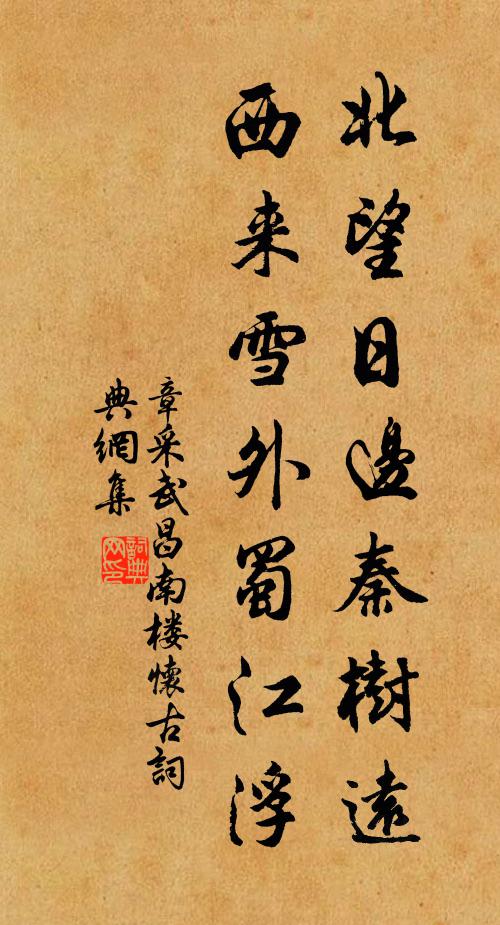 北望日邊秦樹遠
西来雪外蜀江浮
章采武昌南楼懷古詞
典網集
詞典網印